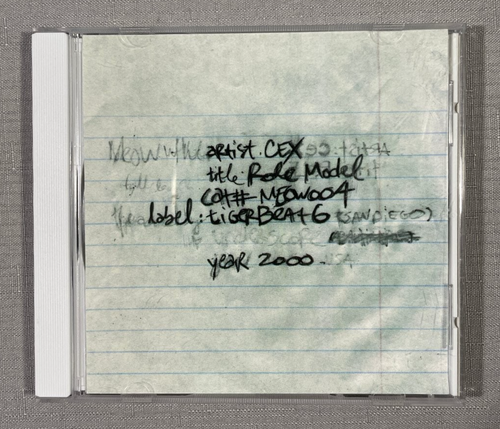 artist. CEX
title: Role Model
cat# MEOW004
label: tiGERBEAt6 (SAN DiEGO)
year 2000.